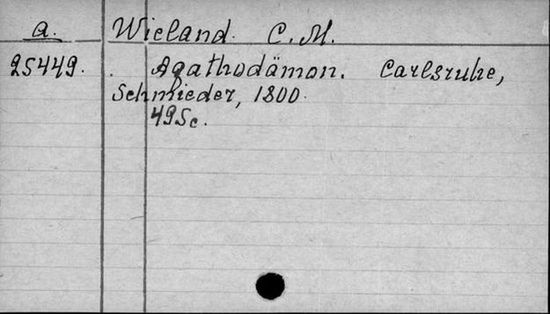 a. Wieland. C. M.
25449. Agathodämon. Carlsruhe,
Schmieder, 1800.
495c.